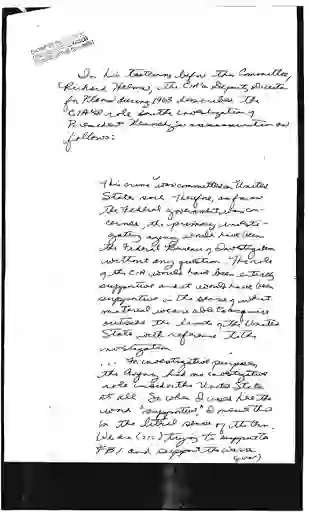 In his testimony before the Committee,
Richard Helms, the CIA's Deputy Director
for Plans during 1963 described the
CIA's role in the investigation of
President Kennedy's assassination as
follows:
This crime was committed on United
States soil. Therefore, as far as
the Federal government was con-
cerned, the primary investi-
gating agency would have been
the Federal Bureau of Investigation
without any question. The role
of the CIA would have been entirely
supportive and it would have been
supportive in the sense of what
material we are able to acquire
outside the limits of the United
States with reference to the
investigation.
... For investigative purposes,
the Agency had no investigative
role inside the United States
at all. So when I used here the
word "supportive," I meant that
in the literal sense of the term.
We are (sic) trying to support the
FBI and support the
(over)